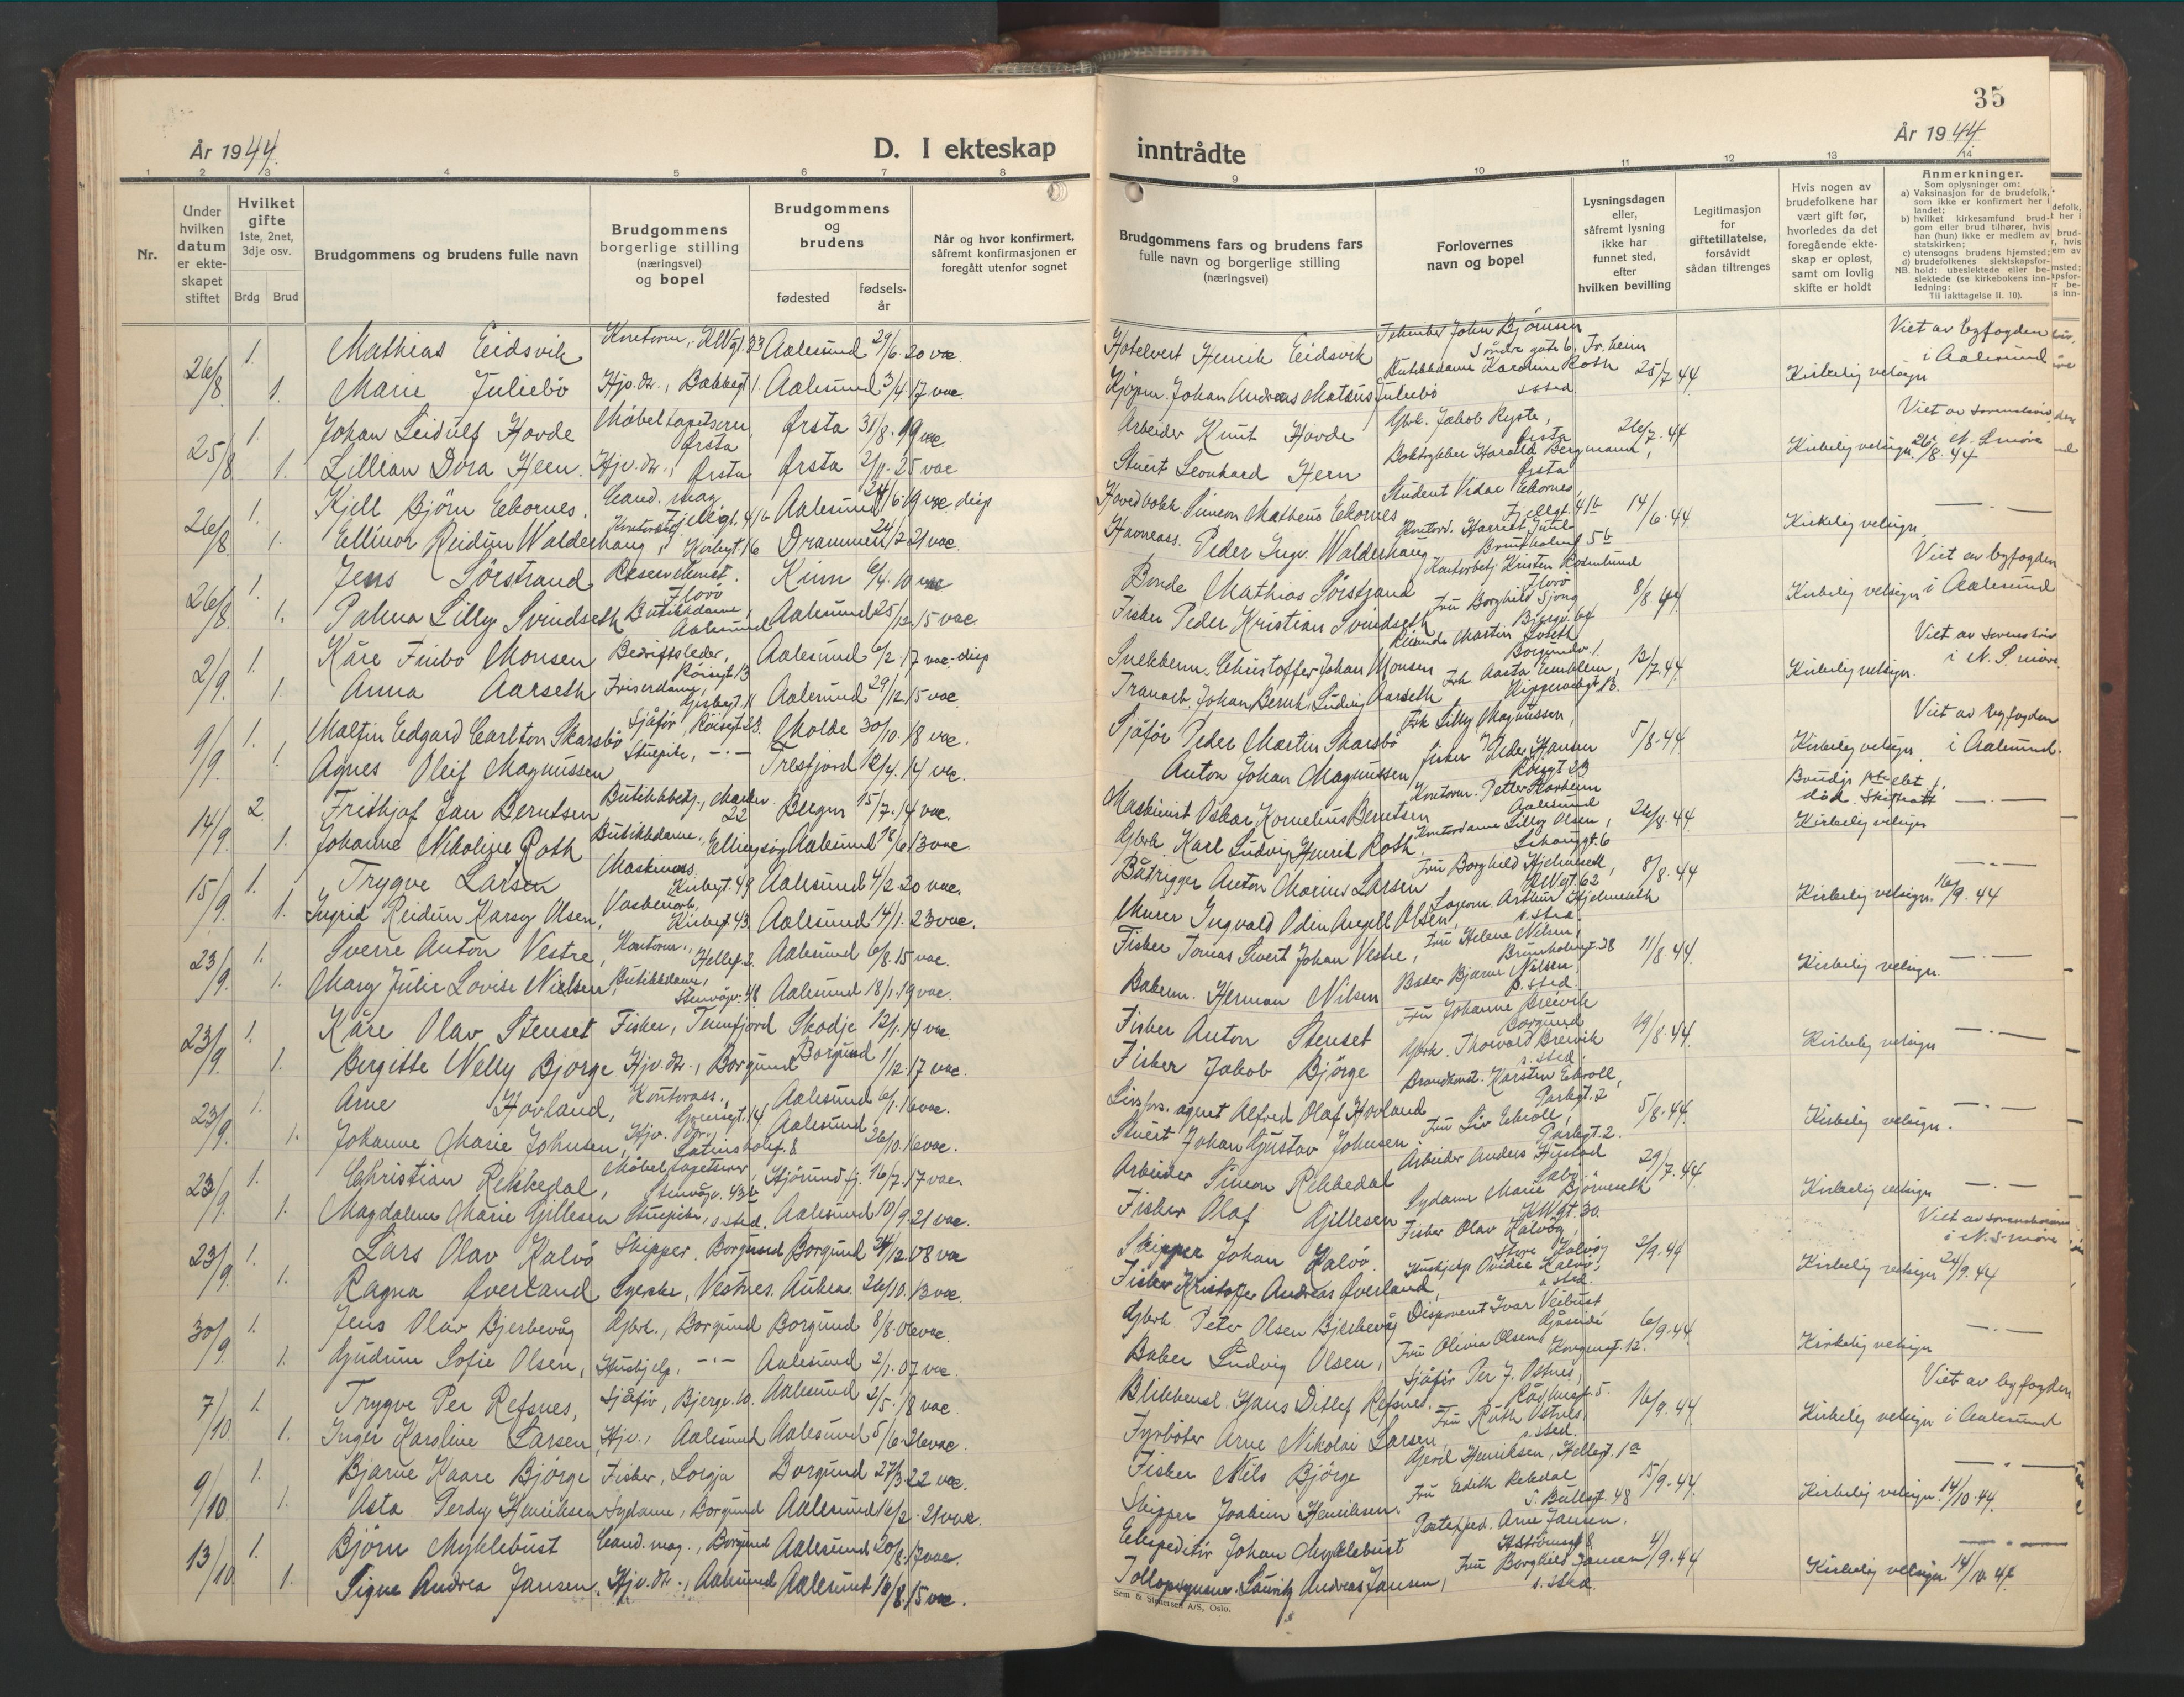 År 1944.
D. I ekteskap
1 2 3 4 5 6 7 8
Nr.
Under hvilken datum er ekteskapet stiftet
Hvilket gifte 1ste, 2net, 3dje osv.
Brdg Brud
Brudgommens og brudens fulle navn
Brudgommens borgerlige stilling (næringsvei) og bopel
Brudgommens og brudens
fødested
fødselsår
Når og hvor konfirmert, såfremt konfirmasjonen er foregått utenfor sognet
26/8 1. Mathias Eidsvik Aalesund 29/6. 20 vac.
1. Marie Juliebö Hjv. dtr., Bakkegt 1. Aalesund 3/4. 17 vac.
25/8 1. Johan Leidulf Hovde Möbeltapetserer, Ørsta Ørsta 31/8. 19 vac
1. Lillian Dora Heen. Hjv. dtr., Ørsta Ørsta 2/11. 25 vac
26/8 1. Kjell Björn Ekornes. Cand. mag. Fjellgt. 41b Aalesund 24/6. 19 vac. disp
1. Ellinor Reidun Walderhaug, Kirkegt. 16 Drammen 24/2. 21 vac.
26/8 1. Jens Sörstrand Florö Kinn 6/4. 10 vac
1. Palma Lilly Svindseth Butikkdame, Aalesund Aalesund 25/12. 15 vac.
2/9. 1. Kåre Finbo Monsen Bedriftsleder, Röisegt 13 Aalesund 6/2. 17 vac. disp
1. Anna Aarseth Friserdame, Aalesund 29/12. 15 vac.
9/9. 1. Edgard Carlton Skarsbö Sjåför, Röisegt. 23. Molde 30/10. 18 vac.
1. Agnes Oleif Magnussen Stuepike, -"- Tresfjord 12/4. 14 vac.
14/9. 2. Frithjof Jan Berntsen Butikkbetj., 22 Bergen 15/7. 14 vac.
1. Johanne Nikoline Roth Butikkdame, Ellingsöy Aalesund 18/6. 13 vac.
15/9. 1. Trygve Larsen Maskinass. Kirkegt. 49 Aalesund 4/2. 20 vac.
1. Ingrid Reidun Karsy Olsen, Kirkegt. 43. Aalesund 14/1. 23 vac.
23/9. 1. Sverre Anton Vestre, Kontorm., Hellegt. 2. Aalesund 6/8. 15 vac.
1. Mary Julie Lovise Nielsen, Butikkdame, Stenvågv. 48 Aalesund 18/1. 19 vac.
23/9. 1. Kåre Olav Stenset Fisker, Tennfjord Skodje 12/1. 14 vac.
1. Bergitte Nelly Bjørge Hjv. dtr., Borgund Borgund 1/12. 17 vac.
23/9. 1. Arne Hovland, Kontorass., Aalesund 6/1. 16 vac.
1. Johanne Marie Johnsen, Hjv. dtr., Aalesund 26/10. 16 vac.
23/9. 1. Christian Rekkedal, Möbeltapetserer, Stenvågv. 43b Hjörundfj. 16/7. 17 vac.
1. Magdalene Marie Gillesen Stuepike, s. sted. Aalesund 10/9. 21 vac.
23/9. 1. Lars Olav Kalvö Skipper. Borgund Borgund 24/12. 08 vac
1. Ragna Øverland Syerske, Vestnes. Aukra. 26/10. 13 vac.
30/9. 1. Jens Olav Bjerkevåg Gbrk., Borgund Borgund 8/8. 06 vac.
1. Gudrun Sofie Olsen, Hushjelp, -"- Aalesund 2/1. 07 vac.
7/10. 1. Trygve Per Refsnes, Sjåför, Bjergv. 10. Aalesund 2/5. 18 vac
1. Inger Karoline Larsen, Hjv., Aalesund Aalesund 5/6. 26 vac.
9/10. 1. Bjarne Kaare Björge Fisker, Longja Borgund 27/3. 22 vac.
1. Asta Perdy Henriksen Sydame, Borgund Aalesund 16/2. 21 vac.
13/10. 1. Björn Myklebust Cand. mag., Borgund Aalesund 20/8. 17 vac.
1. Signe Andrea Jansen. Hjv. dtr., Aalesund Aalesund 16/8. 15 vac.
35
inntrådte
År 1944.
9 10 11 12 13 14
Brudgommens fars og brudens fars fulle navn og borgerlige stilling (næringsvei)
Forlovernes navn og bopel
Lysningsdagen eller, såfremt lysning ikke har funnet sted, efter hvilken bevilling
Legitimasjon for giftetillatelse, forsåvidt sådan tiltrenges
Hvis nogen av brudefolkene har vært gift før, hvorledes da det foregående ekteskap er opløst, samt om lovlig skifte er holdt
Anmerkninger.
Som oplysninger om:
a) Vaksinasjon for de brudefolk, som ikke er konfirmert her i landet;
b) hvilket kirkesamfund brudgom eller brud tilhører, hvis han (hun) ikke er medlem av statskirken;
c) utensogns brudens hjemsted;
d) brudefolkenes slektskapsforhold: ubeslektede eller beslektede (se kirkebokens innledning: Til iakttagelse II. 10).
NB.
Hotelvert Henrik Eidsvik John Björnsen Söndre gate 6, Tr.heim 25/7. 44 Viet av byfogden i Aalesund
Kjöpm. Johan Andreas Mateus Juliebö Butikkdame Karoline Roth s. sted. Kirkelig velsign
Arbeider Knut Hovde Gbrk. Jakob Ryste, Ørsta 26/7. 44 Viet av sorenskriv. N. Smöre
Stuert Leonhard Heen Boktrykker Harald Bergmann, Ørsta Kirkelig velsign. 26/8. 44
Hovedbokh. Simeon Matheus Ekornes Student Vidar Ekornes Fjellgt. 41b 14/6. 44 -"-
Havneass. Peder Ingv. Walderhaug Brunholmgt 5b Kirkelig velsign
Bonde Mathias Sörstrand Florö 8/8. 44 Viet av byfogden i Aalesund
Fisker Peder Kristian Svindseth Fru Borghild Sjong Kirkelig velsign
Snekkerm. Christoffer Johan Monsen Martin Loseth Borgundv. 1. 12/7. 44 Viet av sorenskriv i N. S. möre.
Johan Bernt Ludvig Aarseth Frk Aasta Emblem, Kipperviksgt 13. Kirkelig velsign.
Sjåför Peder Martin Skarsbö Frk Lilly Magnussen, 5/8. 44 Viet av byfogden i Aalesund.
Anton Johan Magnussen, Fisker Peder Hansen Kirkelig velsign
Maskinist Oskar Kornelius Berntsen Aalesund 26/8. 44. död. Skifteatt -"-
Gbrk Karl Ludvig Henrik Roth. Kontordame Lilly Olsen, Kirkelig velsign
Båtrigger Anton Marius Larsen Fru Borghild Hjelmseth, 8/8. 44 -"-
Murer Ingvald Odin Angell Olsen, Lagerm. Arthur Hjelmseth s. sted. Kirkelig velsign. 16/9. 44
Fisker Tomas Sivert Johan Vestre, Fru Helene Nilsen, Brunholmgt. 28 11/8. 44. -"-
Bakerm. Herman Nilsen Baker Bjarne Nilsen, s. sted. Kirkelig velsign.
Fisker Anton Stenset Fru Johanne Breivik Borgund 19/8. 44 -"-
Fisker Jakob Björge Gbrk. Thorvald Breivik s. sted. Kirkelig velsign
Livsfors. agent Alfred Olaf Hovland Brandkonst. Karsten Ekroll, Parkgt. 2 5/8. 44. -"-
Stuert Johan Gustav Johnsen Fru Liv Ekroll, Parkgt. 2. Kirkelig velsign.
Arbeider Simon Rekkedal Arbeider Anders Hustad 29/7. 44. -"-
Fisker Olaf Gillesen Sydame Marie Björneseth KWgt. 30. Kirkelig velsign
Skipper Johan Kalvö. Fisker Olav Kalvøy, Store Kalvøy 2/9. 44 Viet av sorenskriveren i N. S möre
Fisker Kristoffer Andreas Øverland, Hushjelp Ovidie Kalvö, s. sted. Kirkelig velsign 24/9. 44
Gbrk Peter Olsen Bjerkevåg Disponent Ivar Veibust, 6/9. 44. -"-
Baker Ludvig Olsen, Fru Olivia Olsen, Kongensgt. 12. Kirkelig velsign
Blikkensl. Hans Ditlef Refsnes. Sjåför Per J. Ostnes, Rådhusgt. 5. 16/9. 44. Viet av byfogden i Aalesund
Fyrböter Arne Nikolai Larsen Fru Ruth Ostnes, s. sted. Kirkelig velsign
Fisker Nils Björge Gerd Henriksen, Hellegt. 1a 15/9. 44. -"-
Skipper Joakim Henriksen. Fru Edith Rekdal O. Bullsgt. 48 Kirkelig velsign. 14/10. 44.
Ekspeditör Johan Myklebust Posteksped. Arne Jansen. 4/9. 44 -"-
Tolloppsynsm. Lauritz Andreas Jansen, Fru Borghild Jansen s. sted. Kirkelig velsign. 14/10. 44
Sem & Stenersen A/S, Oslo.